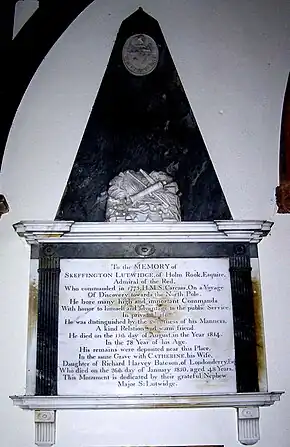 To the MEMORY of
SKEFFINGTON LUTWIDGE, of Holm Rook, Esquire,
Admiral of the Red,
Who commanded in 1773, H.M.S. Carcass, On a Voyage
Of Discovery towards the North Pole.
He bore many high and important Commands
With honor to himself and advantage to the public Service.
In private life
He was distinguished by the sweetness of his Manners,
A kind Relation and warm friend.
He died on the 15th day of August, in the Year 1814.
In the 78 Year of his Age.
His remains were deposited near this Place,
In the same Grave with CATHERINE, his Wife,
Daughter of Richard Harvey Bateson, of Londonderry, Esq
Who died on the 26th day of January 1810, aged 48 Years.
This Monument is dedicated by their grateful Nephew
Major S: Lutwidge.